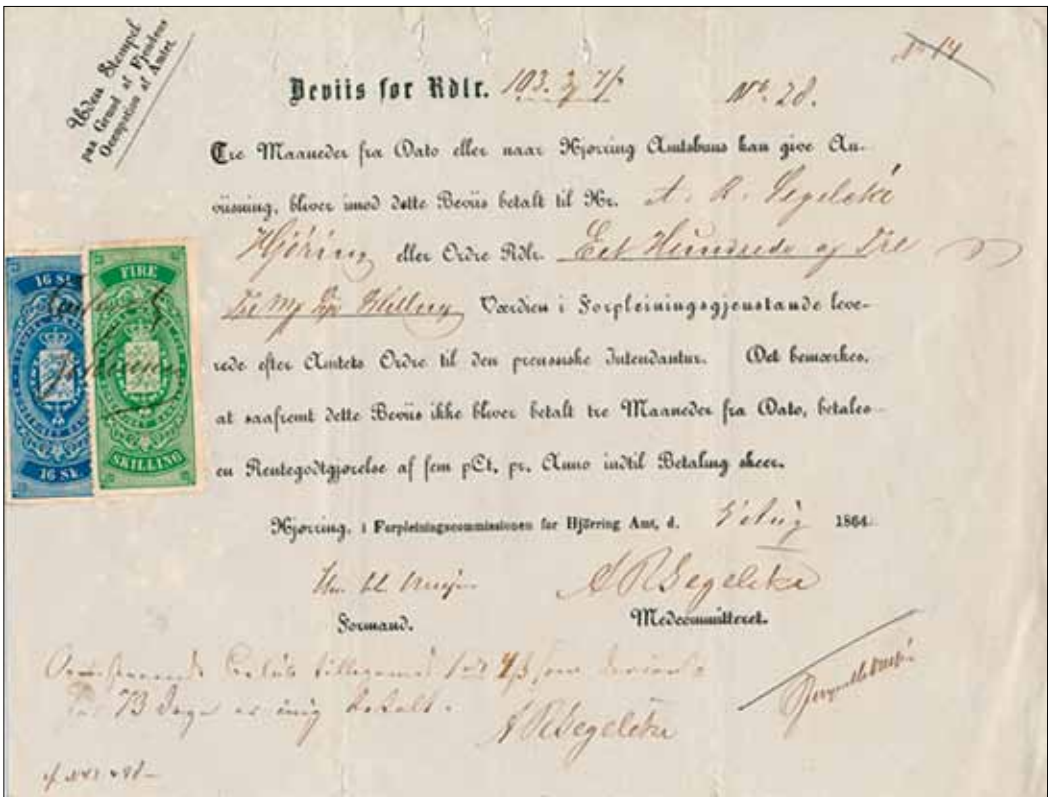 Uden Stempel
paa Grund af Fjendens
Occupation af Amtet.
No 14
Beviis for Rdlr. 103. 3 7/
No. 28.
Tre Maaneder fra Dato eller naar Hjørring Amtshuus kan give An-
viisning, bliver imod dette Beviis betalt til Hr. A. R. Segelcke
Hjöring eller Ordre Rdlr. Eet Hundrede og Tre
Tre Mk Syv Skilling Værdien i Forpleiningsgjenstande leve-
rede efter Amtets Ordre til den preussiske Intendantur. Det bemærkes,
at saafremt dette Beviis ikke bliver betalt tre Maaneder fra Dato, betales
en Rentegodtgjørelse af fem pCt. pr. Anno indtil Betaling skeer.
16 SK.
FIRE
16 SK.
SKILLING
Hjørring, i Forpleiningscommissionen for Hjörring Amt, d. 5 Aug 1864.
A R Segelcke
Formand.
Medcommitteret.
73 Dage er mig betalt.
A R Segelcke